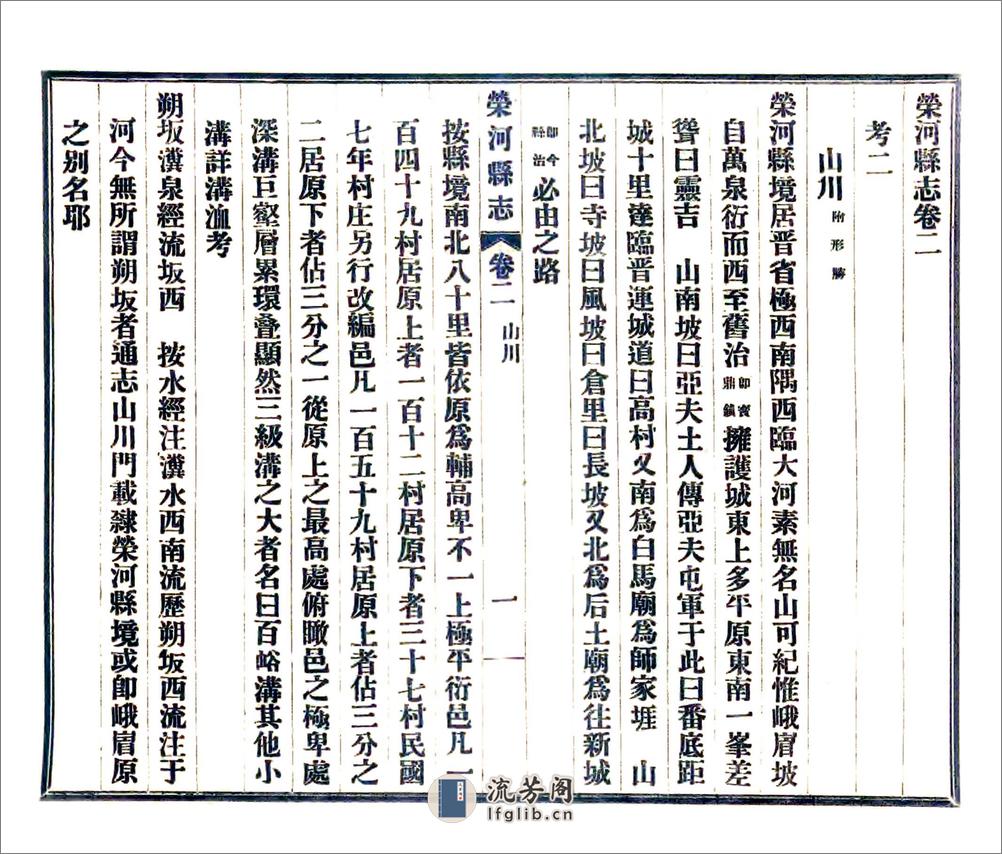 榮河縣志卷二
考二
山川 附形勝
榮河縣境居晉省極西南隅西臨大河素無名山可紀惟峨眉坡
自萬泉衍而西至舊治 即寶鼎鎮 擁護城東上多平原東南一峯差
聳曰靈吉 山南坡曰亞夫土人傳亞夫屯軍于此曰番底距
城十里達臨晉運城道曰高村又南爲白馬廟爲師家堐 山
北坡曰寺坡曰風坡曰倉里曰長坡又北爲后土廟爲往新城
即今縣治 必由之路
榮河縣志 卷二 山川 一
按縣境南北八十里皆依原爲輔高卑不一上極平衍邑凡一
百四十九村居原上者一百十二村居原下者三十七村民國
七年村庄另行改編邑凡一百五十九村居原上者佔三分之
二居原下者佔三分之一從原上之最高處俯瞰邑之極卑處
深溝巨壑層累環叠顯然三級溝之大者名曰百峪溝其他小
溝詳溝洫考
朔坂瀵泉經流坂西 按水經注瀵水西南流歷朔坂西流注于
河今無所謂朔坂者通志山川門載隸榮河縣境或卽峨眉原
之别名耶
流芳阁
lfglib.cn